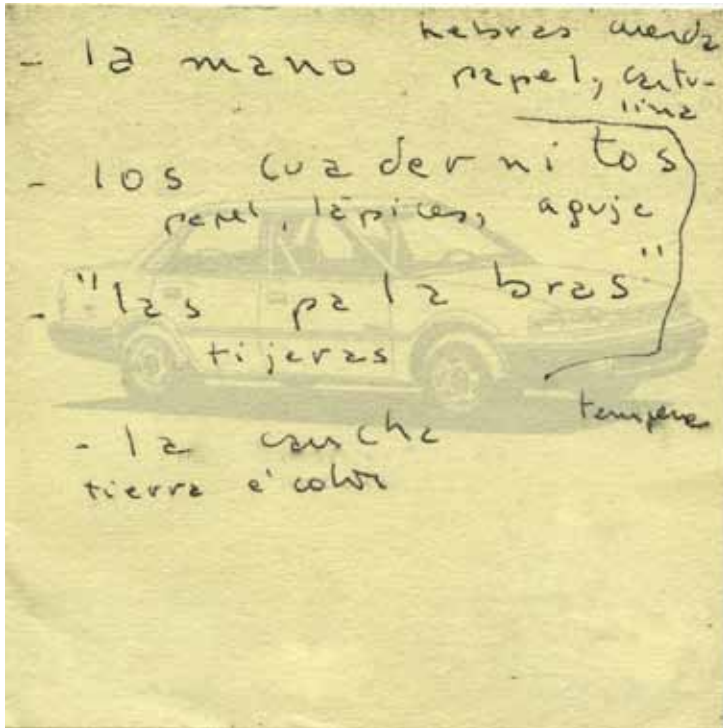 - la mano
hebras cuerda
papel, cartu-
lina
- los cuadernitos
papel, lápices, aguja
- "las palabras"
tijeras
temperas
- la cancha
tierra e' color